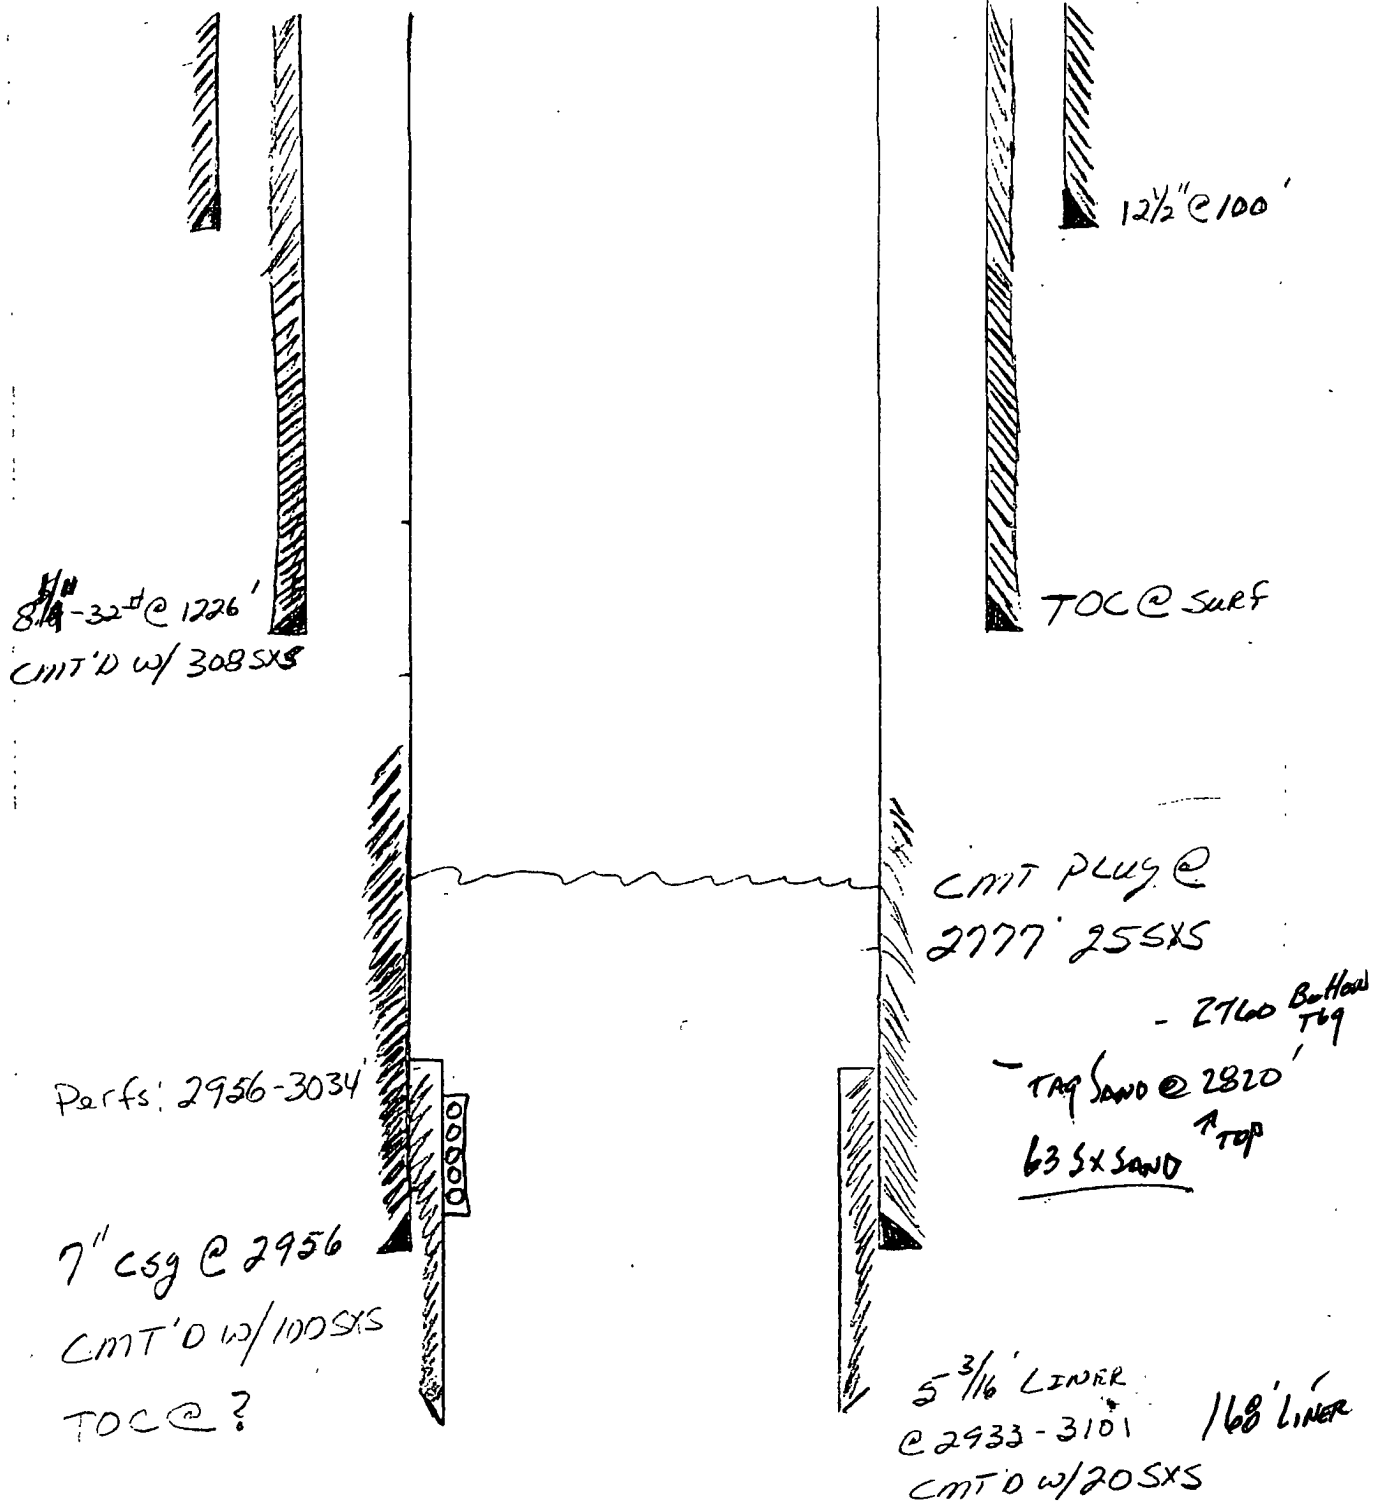 12 1/2" @ 100'
-32# @ 1226'
CMT'D W/ 308 SXS
TOC @ SURF
CMT PLUG @
2777' 25 SXS
- 2760 Bottom
Tbg
- TAG SAND @ 2820'
↑ TOP
63 SX SAND
Perfs: 2956-3034'
7" csg @ 2956
CMT'D W/ 100 SXS
TOC @ ?
5 3/16' LINER
@ 2933 - 3101
CMT'D W/ 20 SXS
168' LINER